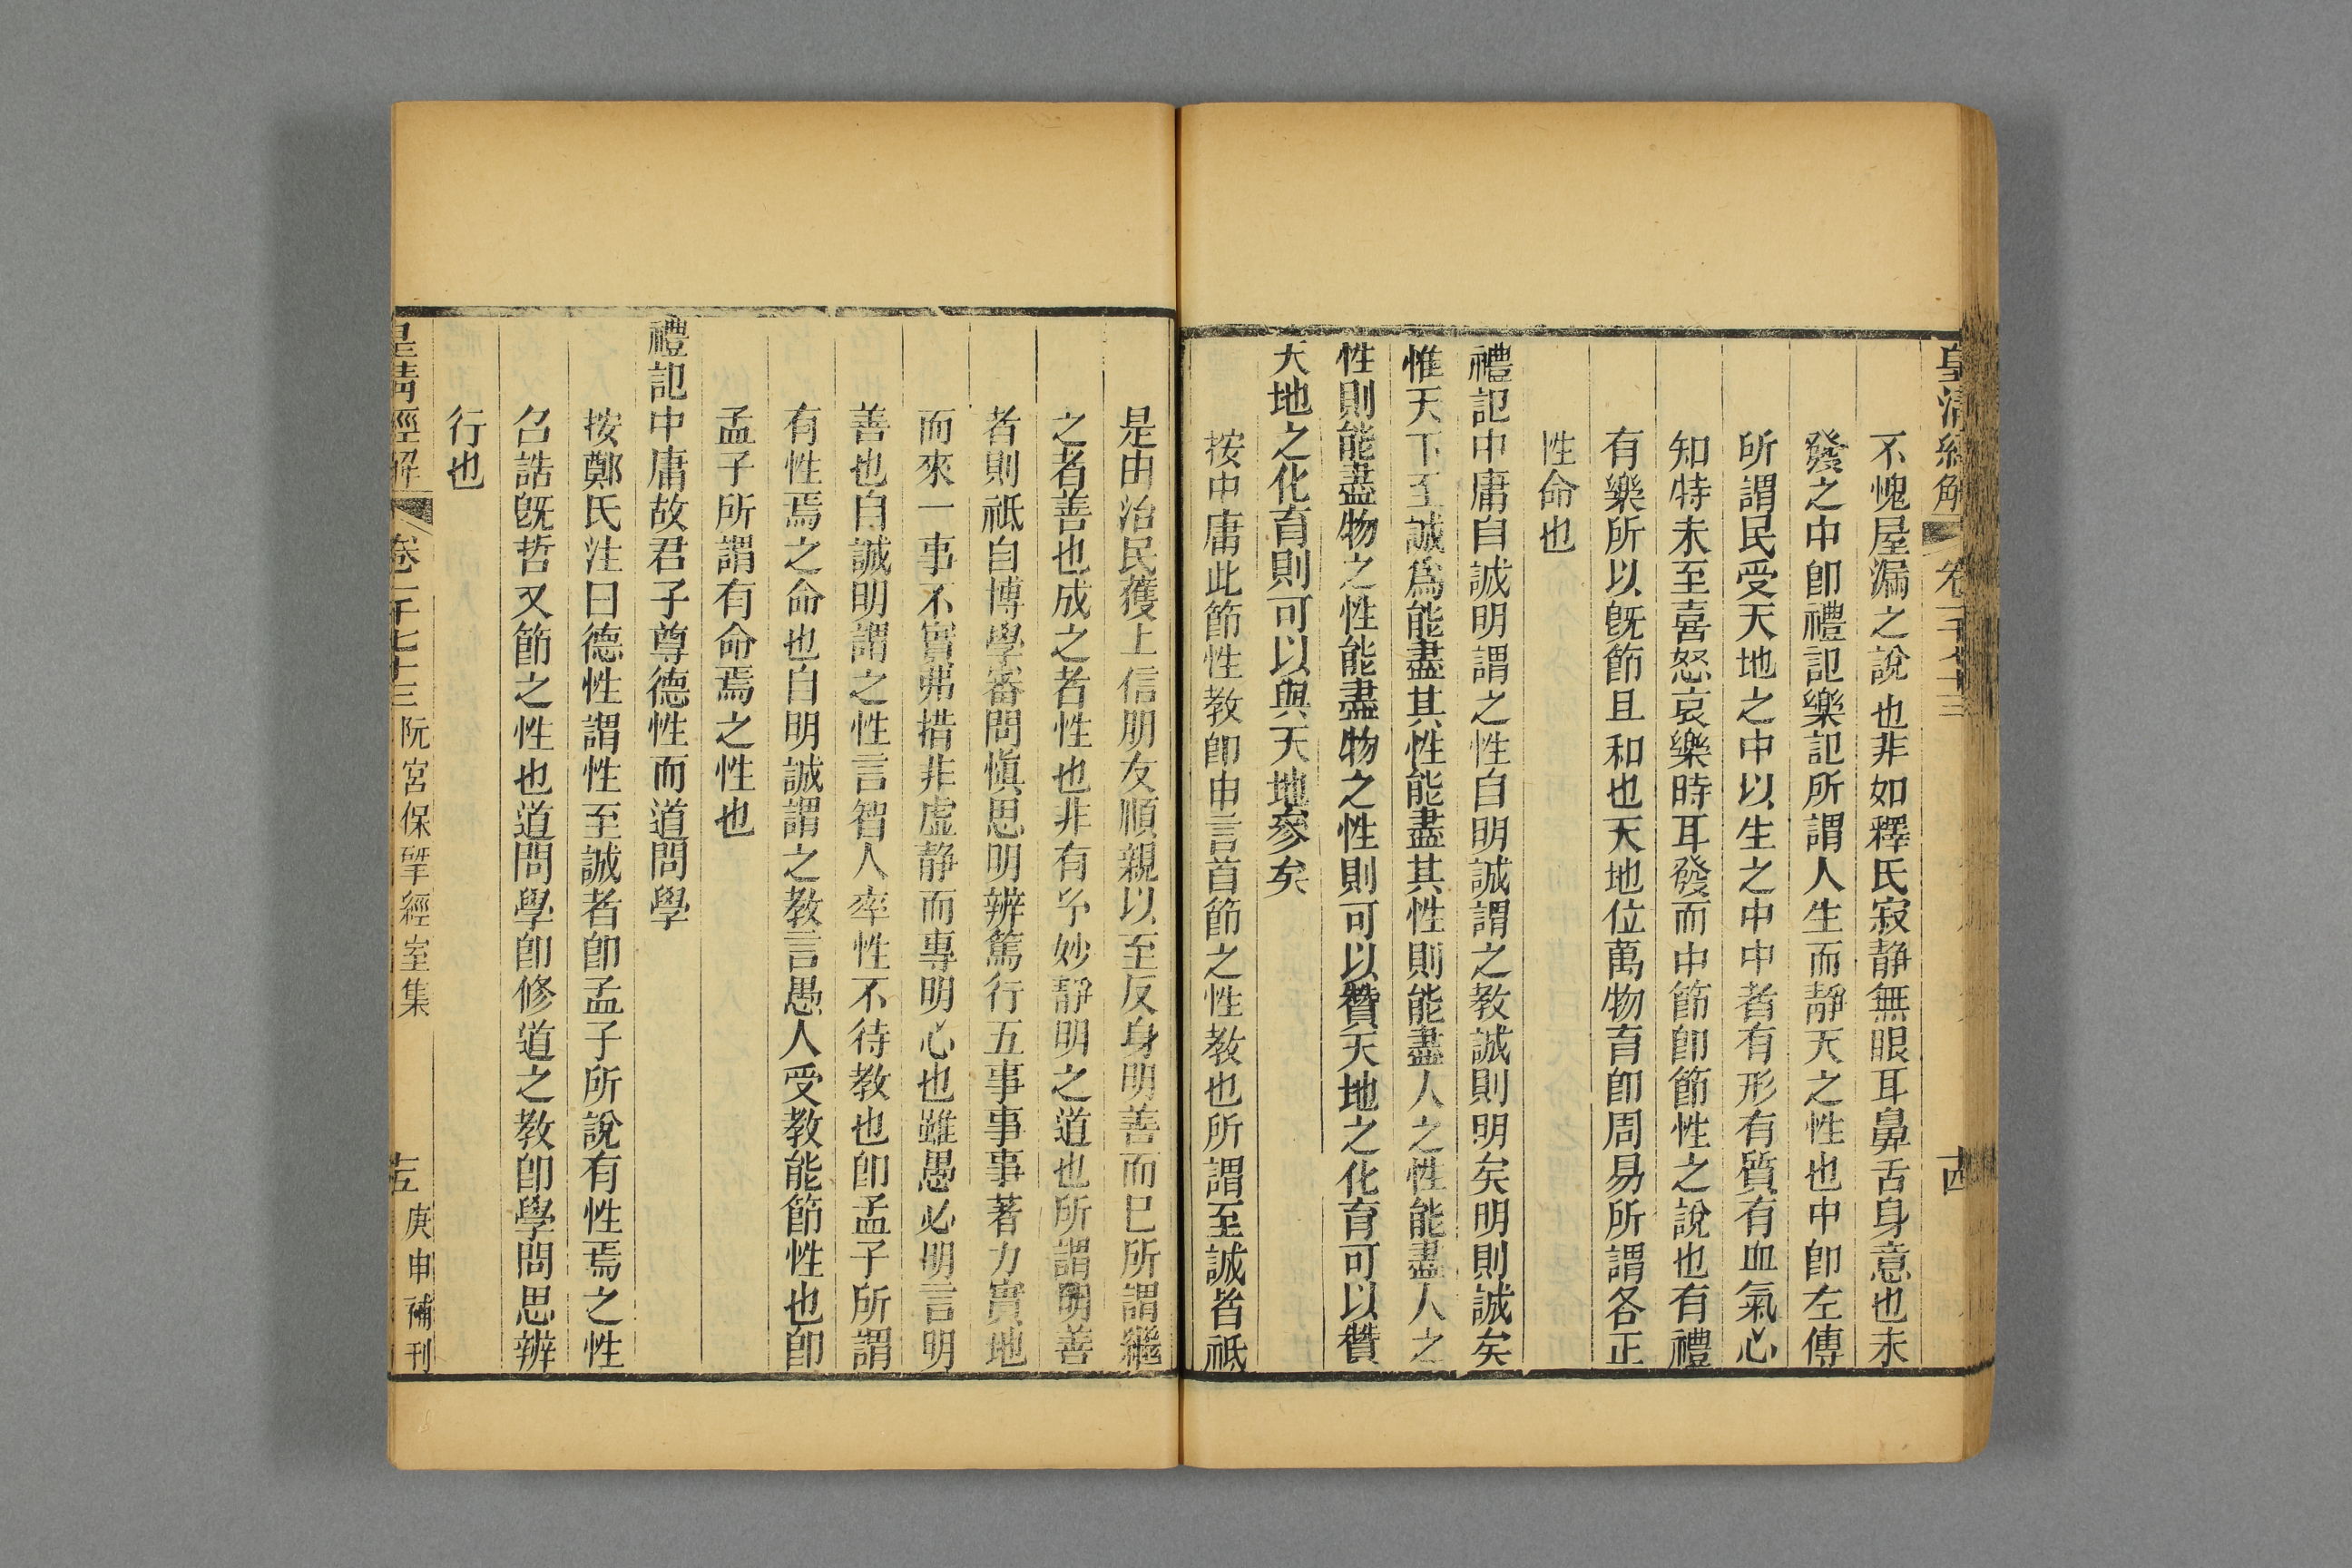 皇清經解 卷一千七十三 十四
不愧屋漏之說也非如釋氏寂静無眼耳鼻舌身意也未
發之中卽禮記樂記所謂人生而靜天之性也中卽左傳
所謂民受天地之中以生之中中者有形有質有血氣心
知特未至喜怒哀樂時耳發而中節卽節性之說也有禮
有樂所以旣節且和也天地位萬物育卽周易所謂各正
性命也
禮記中庸自誠明謂之性自明誠謂之教誠則明矣明則誠矣
惟天下至誠爲能盡其性能盡其性則能盡人之性能盡人之
性則能盡物之性能盡物之性則可以贊天地之化育可以贊
天地之化育則可以與天地參矣
按中庸此節性教卽申言首節之性教也所謂至誠者祇
是由治民獲上信朋友順親以至反身明善而巳所謂繼
之者善也成之者性也非有予妙靜明之道也所謂明善
者則祇自博學審問愼思明辨篤行五事事事著力實地
而來一事不實弗措非虛静而專明心也雖愚必明言明
善也自誠明謂之性言智人率性不待教也卽孟子所謂
有性焉之命也自明誠謂之教言愚人受教能節性也卽
孟子所謂有命焉之性也
禮記中庸故君子尊德性而道問學
按鄭氏注曰德性謂性至誠者卽孟子所說有性焉之性
召誥旣哲又節之性也道問學卽修道之教卽學問思辨
行也
皇清經解 卷一千七十三 阮宮保揅經室集 十五 庚申補刊